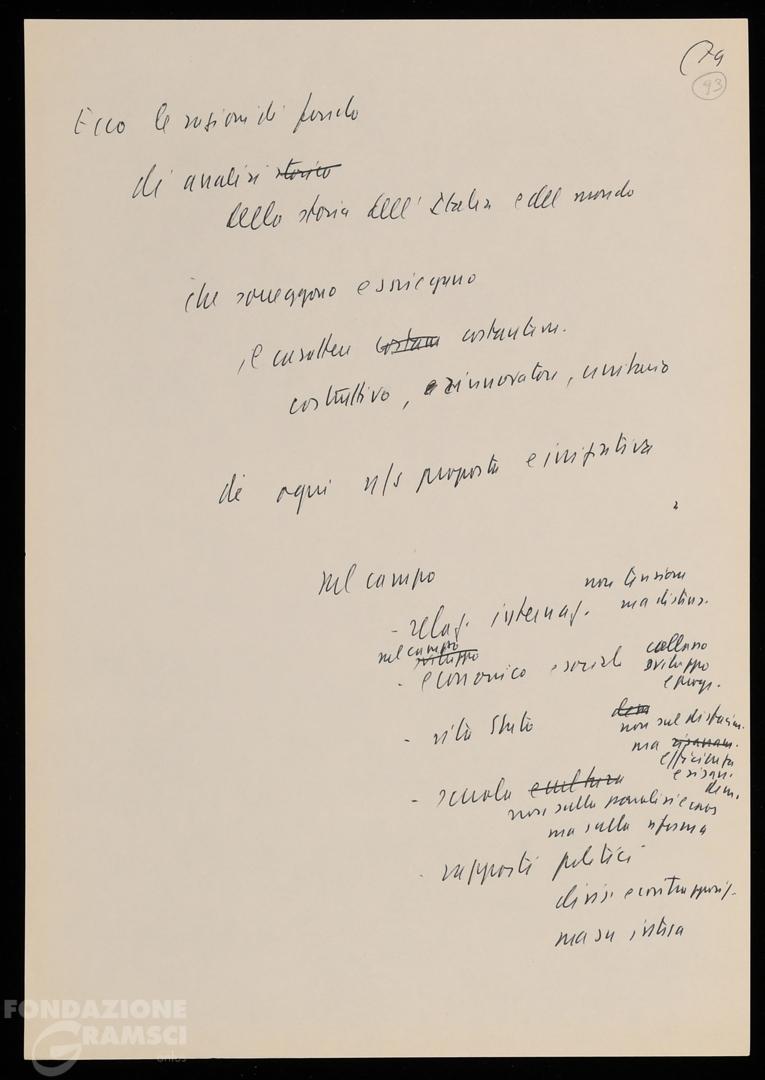 (79
93
Ecco le ragioni di fondo
di analisi storico
della storia dell'Italia e del mondo
che sorreggono e spiegano
il carattere costam costantem.
costruttivo, e rinnovatore, unitario
di ogni n/s proposta e iniziativa
nel campo
non tensione
- relaz. internaz. ma distens.
nel campo sviluppo
- economico e sociale
sviluppo
e progr.
- vita Stato
dem
non sul disfacim.
ma risanam.
efficienza
e risan.
dem.
- scuola e cultura
non sulla paralisi e caos
ma sulla riforma
- rapporti politici
divis. e contrapposiz.
ma su intesa
FONDAZIONE
GRAMSCI
onlus